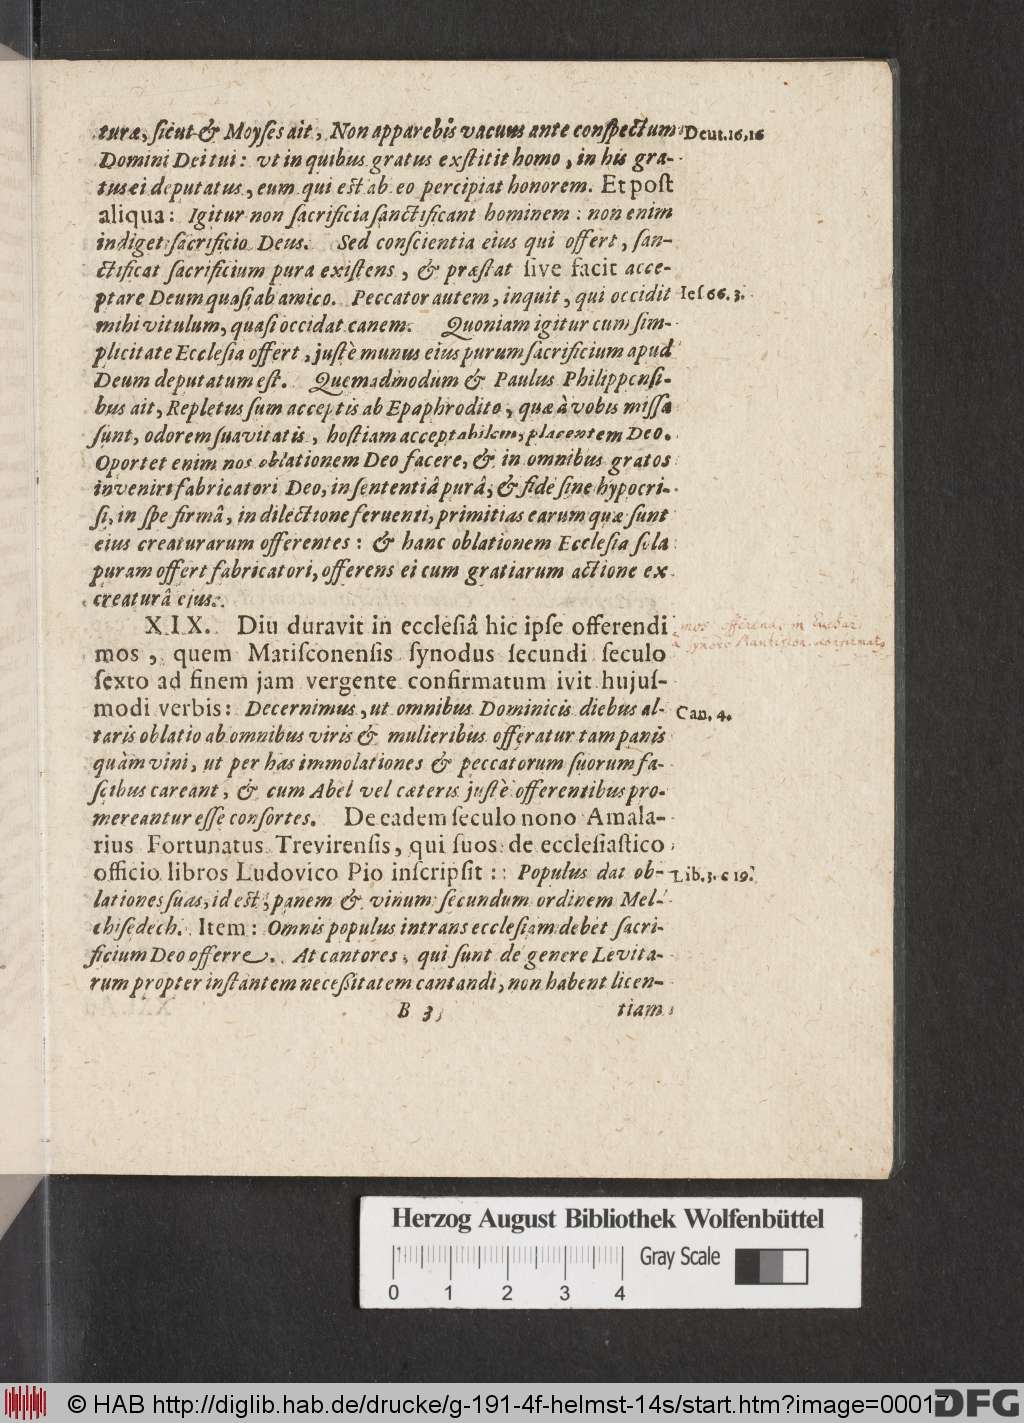 turæ, ſicut & Moyſes ait, Non apparebis vacuus ante conſpectum Deut. 16, 16
Domini Dei tui: vt in quibus gratus exſtitit homo, in his gra-
tus ei deputatus, eum qui eſt ab eo percipiat honorem. Et poſt
aliqua: Igitur non ſacrificia ſanctificant hominem: non enim
indiget ſacrificio Deus. Sed conſcientia eius qui offert, ſan-
ctificat ſacrificium pura exiſtens, & præſtat ſive facit acce-
ptare Deum quaſi ab amico. Peccator autem, inquit, qui occidit Ieſ 66. 3.
mihi vitulum, quaſi occidat canem. Quoniam igitur cum ſim-
plicitate Eccleſia offert, juſtè munus eius purum ſacrificium apud
Deum deputatum eſt. Quemadmodum & Paulus Philippenſi-
bus ait, Repletus ſum acceptis ab Epaphrodito, quæ à vobis miſſa
ſunt, odorem ſuavitatis, hoſtiam acceptabilem, placentem Deo.
Oportet enim nos oblationem Deo facere, & in omnibus gratos
inveniri fabricatori Deo, in ſententiâ purâ, & fide ſine hypocri-
ſi, in ſpe firmâ, in dilectione feruenti, primitias earum quæ ſunt
eius creaturarum offerentes: & hanc oblationem Eccleſia ſola
puram offert fabricatori, offerens ei cum gratiarum actione ex
creaturâ ejus.
XIX. Diu duravit in eccleſiâ hic ipſe offerendi
mos, quem Matiſconenſis ſynodus ſecundi ſeculo
ſexto ad finem jam vergente confirmatum ivit hujuſ-
modi verbis: Decernimus, ut omnibus Dominicis diebus al- Can. 4.
taris oblatio ab omnibus viris & mulieribus offeratur tam panis
quàm vini, ut per has immolationes & peccatorum ſuorum fa-
ſcibus careant, & cum Abel vel cæteris juſtè offerentibus pro-
mereantur eſſe conſortes. De eadem ſeculo nono Amala-
rius Fortunatus Trevirenſis, qui ſuos de eccleſiaſtico
officio libros Ludovico Pio inſcripſit: Populus dat ob- Lib. 3. c 19.
lationes ſuas, id eſt, panem & vinum ſecundum ordinem Mel-
chiſedech. Item: Omnis populus intrans eccleſiam debet ſacri-
ficium Deo offerre. At cantores, qui ſunt de genere Levita-
rum propter inſtantem neceſſitatem cantandi, non habent licen-
B 3 tiam
Herzog August Bibliothek Wolfenbüttel
Gray Scale
0 1 2 3 4
© HAB http://diglib.hab.de/drucke/g-191-4f-helmst-14s/start.htm?image=00017
DFG